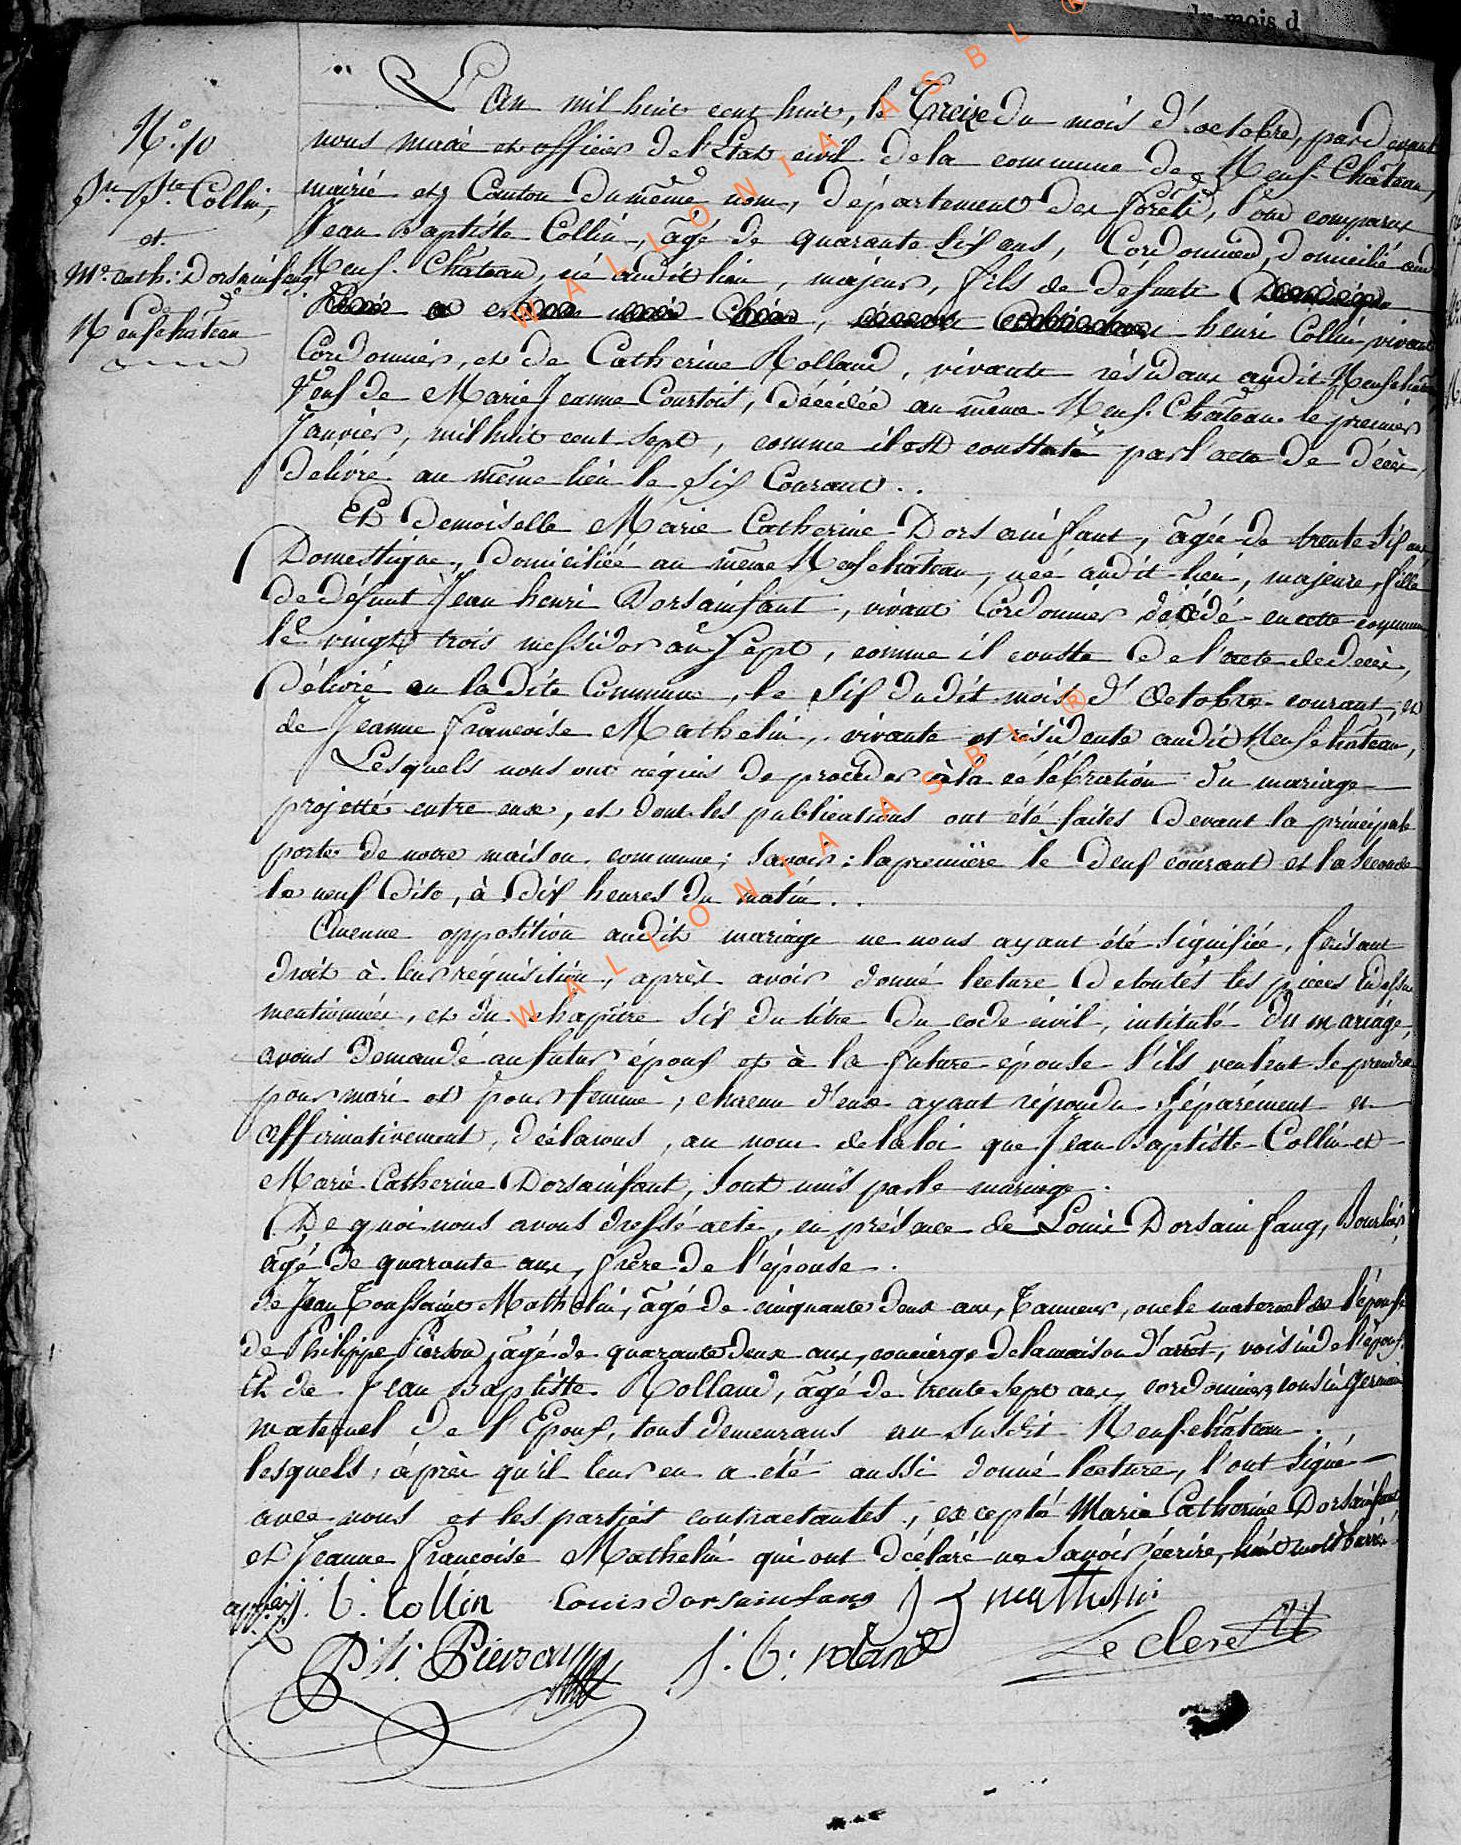 du mois d
N.o 10
Jn. Bte. Collin,
et
Me. Cath: Dorsainfang
de
Neufchateau
L'an mil huit cent huit, le treize du mois d'octobre, pardevant
nous maire et officier de l'Etat civil de la commune de Neuf-Château,
mairie et Canton du même nom, département des forêts, sont comparus
Jean Baptiste Collin, âgé de quarante six ans, Cordonnier, domicilié audit
Neuf-Château, né audit lieu, majeur, fils de défunt
henri Collin, vivant
Cordonnier, et de Catherine Rolland, vivante résidant audit Neufchateau
Veuf de Marie Jeanne Courtois, décédée au même Neuf-Château le premier
Janvier, mil huit cent sept, comme il est constaté par l'acte de décès,
délivré au même lieu le six Courant..
Et Demoiselle Marie Catherine Dorsainfant, âgée de trente six ans
Domestique, domiciliée au même Neufchateau, née audit lieu, majeure, fille
de défunt Jean henri Dorsainfant, vivant Cordonnier décédé en cette commune
le vingt trois messidor an Sept, comme il conste de l'acte de décès,
Délivré en la dite Commune, le six dudit mois d'Octobre courant, et
de Jeanne françoise Mathelin, vivante et résidente audit Neufchateau,
Lesquels nous ont requis de procéder à la célébration du mariage
projetté entre eux, et dont les publications ont été faites devant la principale
porte de notre maison commune; savoir: la première le deux courant et la seconde
le neuf dito, à dix heures du matin..
Aucune opposition audit mariage ne nous ayant été signifiée, faisant
droit à leur réquisition, après avoir donné lecture de toutes les pièces cidessus
mentionnées, et du chapitre six du titre du code civil, intitulé du mariage,
avons demandé au futur époux et à la future épouse s'ils veulent se prendre
pour mari et pour femme; chacun d'eux ayant répondu séparément et
affirmativement, déclarons, au nom de la loi que Jean Baptiste Collin et
Marie Catherine Dorsainfant, sont unis par le mariage.
De quoi nous avons dressé acte, en présence de Louis Dorsainfang,
âgé de quarante ans, frère de l'épouse.
de Jean Toussaint Mathelin, âgé de cinquante deux ans, Tanneur, oncle maternel de l'épouse
de Philippe Pierson, âgé de quarante deux ans, concierge de la maison d'arrêt, voisin de l'époux.
Et de Jean Baptiste Rolland, âgé de trente sept ans, cordonnier, cousin germain
maternel de l'Epoux, tous demeurans au susdit Neufchateau.
lesquels, après qu'il leur en a été aussi donné lecture, l'ont signé
avec nous et les parties contractantes, excepté Marie Catherine Dorsainfant
et Jeanne françoise Mathelin qui ont déclaré ne savoir écrire, huit mots barrés
J. b. Collin Louis dorsainfang J T mathelin
P. h. Pierson J. b. roland Le clere
WALLONIA ASBL ®
WALLONIA ASBL ®